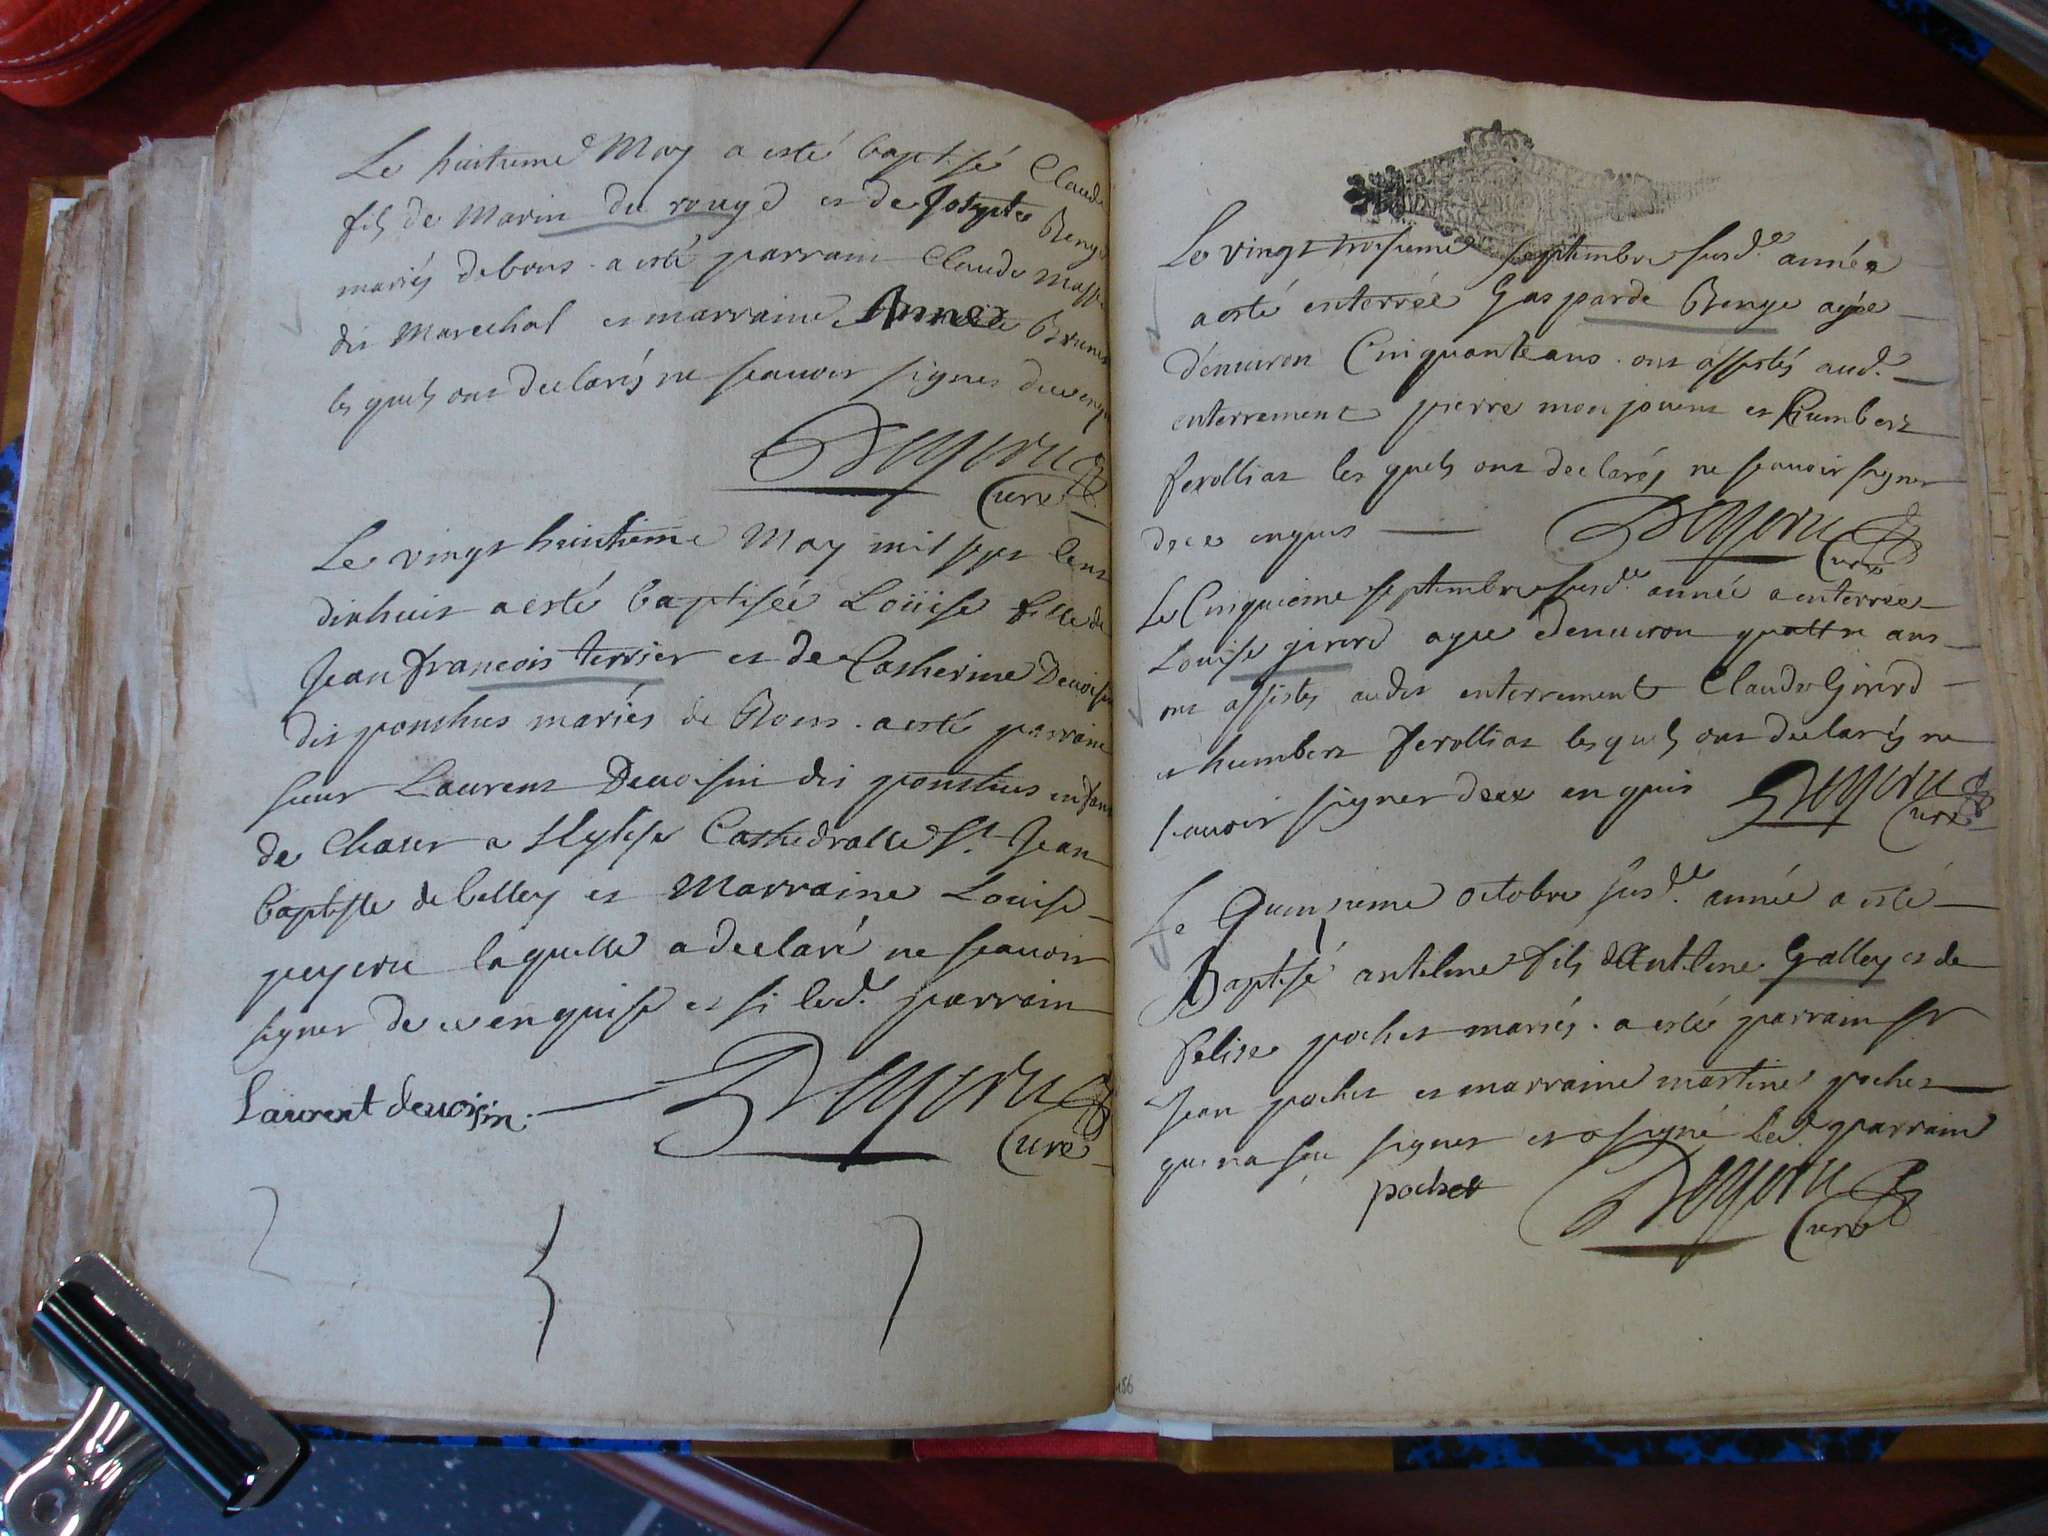 Le huitieme May a esté baptisé Claude
fils de Marin du rouge et de Josepte Benge
mariés de bons . a esté parrain Claude
dit Marechal et marraine Anne
les quels ont declarés ne scauoir signer de ce enquis
Deyeru
Curé
Le vingt huitieme May mil sept cent
dixhuit a esté baptiseé Loüise fille de
Jean francois terrier et de Catherine Deuoisin
dit ponthus mariés de Bons . a esté parrain
sieur Laurent Deuoisin dit ponthus enfant
de Chœur a l'Eglise Cathedralle St Jean
baptiste de belley et Marraine Louise
peyeru laquelle a declaré ne scauoir
signer de ce enquise et si led. parrain
Laurent deuoisin.
Deyeru
Curé
Le vingt troisieme septembre susd.e année
a esté enterreé Gasparde Benge agée
d'enuiron Cinquante ans . ont assistés aud.
enterrement pierre monjouent et humbert
ferolliat les quels ont declarés ne scauoir signer
de ce enquis
Deyeru
Curé
Le Cinquieme septembre susd.e année a enterreé
Louise girerd agee denuiron quattre ans
ont assistés audit enterrement Claude Girerd
et humbert ferolliat lesquels ont declarés ne
scauoir signer de ce enquis
Deyeru
Curé
Le Quinsieme octobre susd.e année a esté
Baptisé antelme fils d'Antelme Galley et de
felise pochet mariés . a esté parrain sr
Jean pochet et marraine martine pochet
qui na sçu signer et a signé led. parrain
pochet
Deyeru
Curé
186